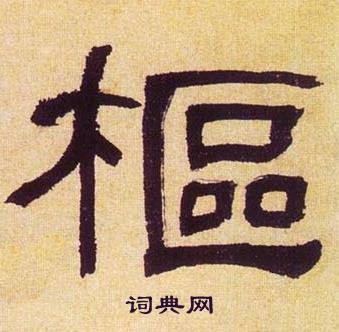 樞
词典网